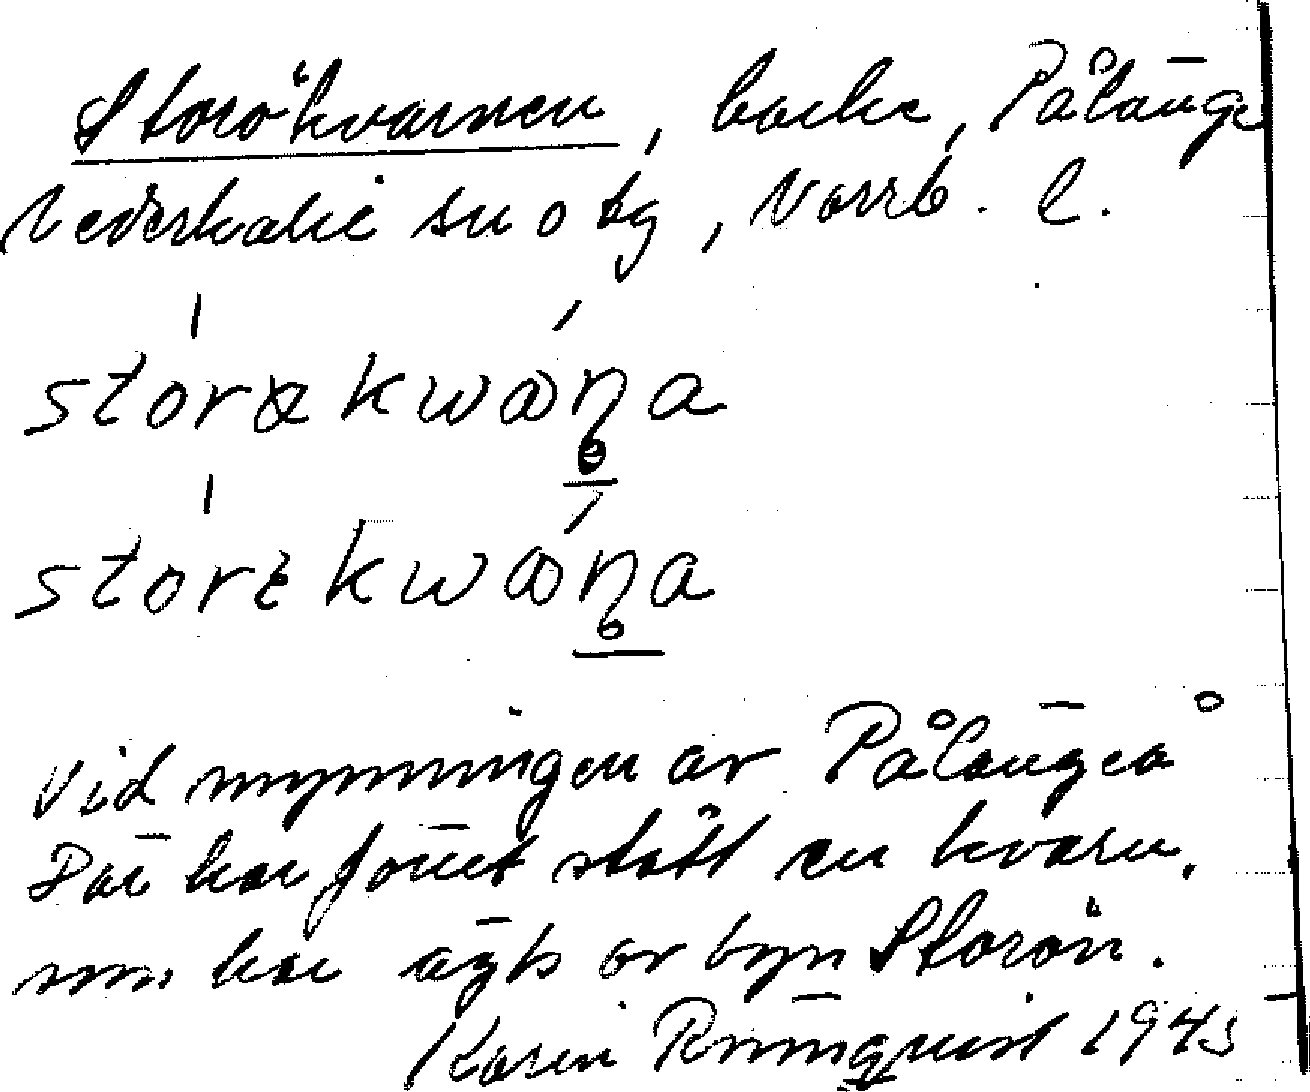 Storökvarnen, backe, Pålänge
Nederkalix sn o tg, Norrb. l.
stórakwana
stórekwana
Vid mynningen av Pålängeå
Där har förut stått en kvarn,
som har ägts av byn Storön.
Karin Rönnquist 1943